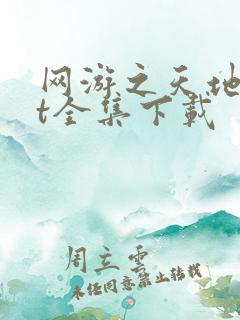 网游之天地
t全集下载
周立云
未经同意禁止转载